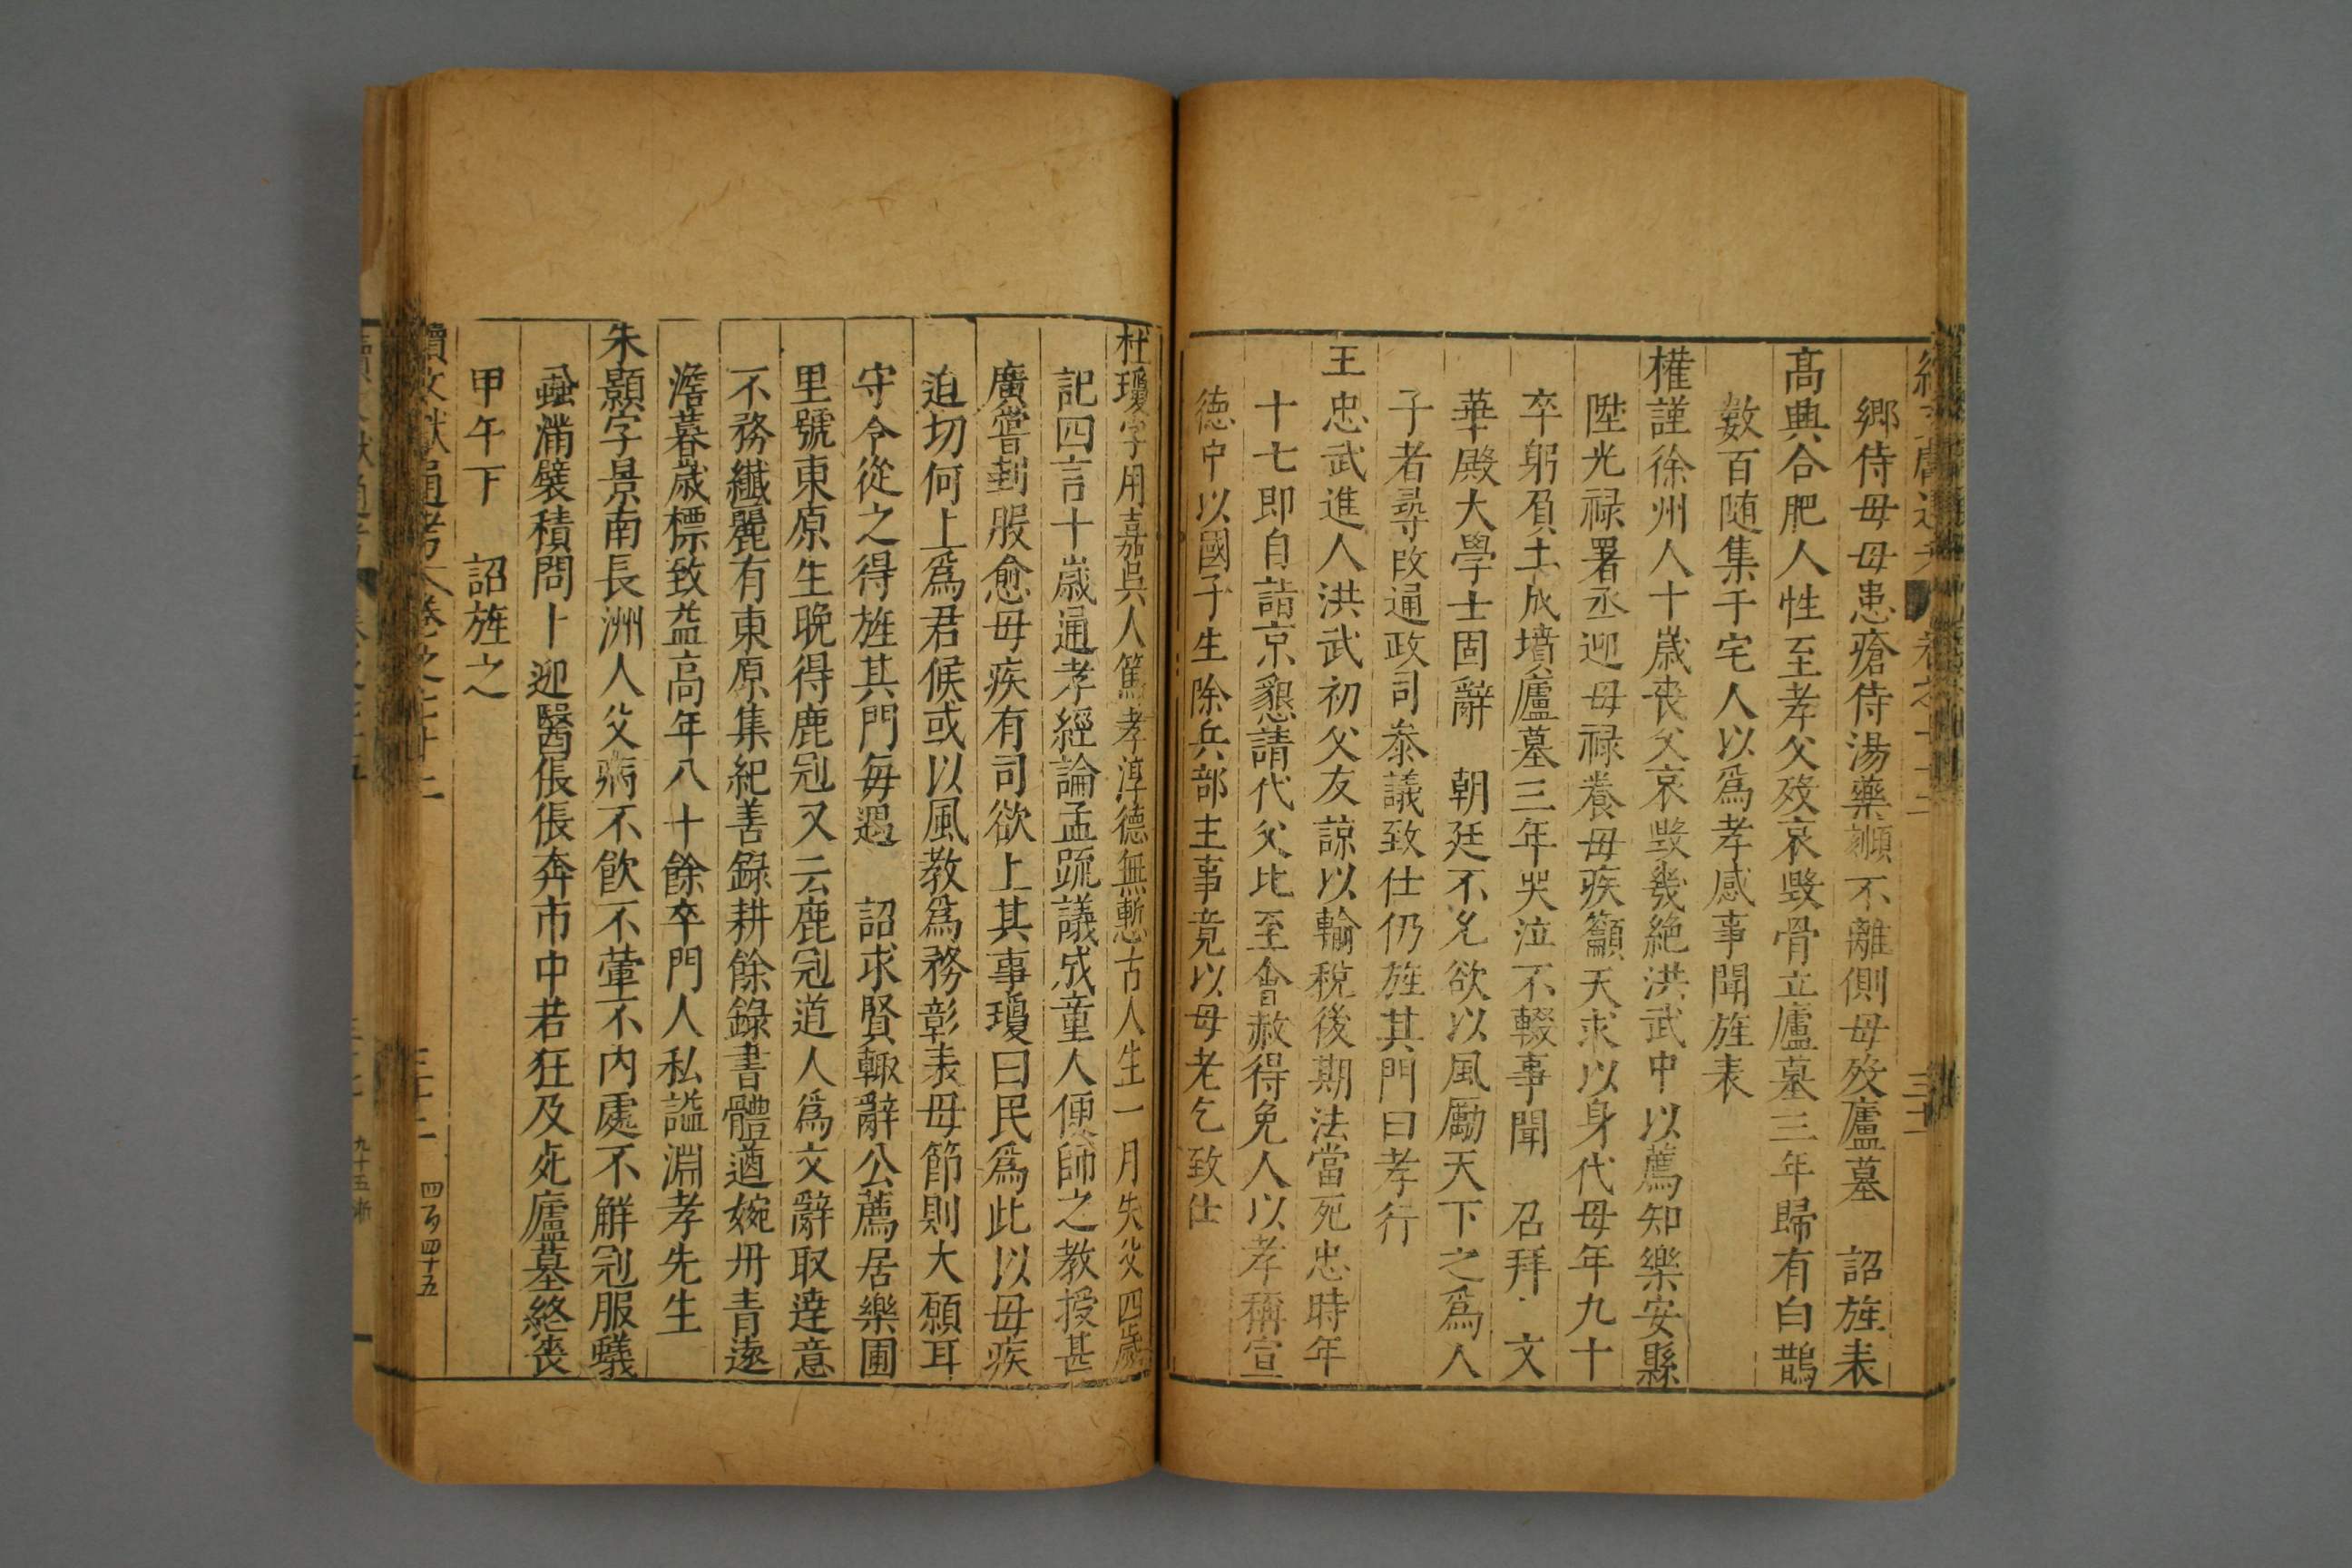 鄉侍母母患瘡侍湯藥頮不離側母歿廬墓　詔旌表
高典合肥人性至孝父歿哀毀骨立廬墓三年歸有白鵲
數百隨集于宅人以爲孝感事聞旌表
權謹徐州人十歲丧父哀毀幾絶洪武中以薦知樂安縣
陞光祿署丞迎母祿養母疾籲天求以身代母年九十
卒躬負土成墳廬墓三年哭泣不輟事聞　召拜　文
華殿大學士固辭　朝廷不允欲以風勵天下之爲人
子者尋改通政司叅議致仕仍旌其門曰孝行
王忠武進人洪武初父友諒以輸稅後期法當死忠時年
十七即自詣京懇請代父比至會赦得免人以孝稱宣
德中以國子生除兵部主事竟以母老乞致仕
杜瓊字用嘉吳人篤孝淳德無慙古人生一月失父四歲
記四言十歲通孝經論孟䟽議成童人便師之教授甚
廣嘗刲股愈母疾有司欲上其事瓊曰民爲此以母疾
迫切何上爲君候或以風教爲務彰表母節則大願耳
守令從之得旌其門每遇　詔求賢輙辭公薦居樂圃
里號東原生晚得鹿冠又云鹿冠道人爲文辭取達意
不務纖麗有東原集紀善錄耕餘錄書體遒婉丹青遠
澹暮歲標致益高年八十餘卒門人私謚淵孝先生
朱顥字景南長洲人父病不飲不葷不內處不解冠服蟻
蝨滿襞積問卜迎醫倀倀奔市中若狂及死廬墓終喪
甲午下　詔旌之
續文獻通考卷之七十二
三十二
四百四十五